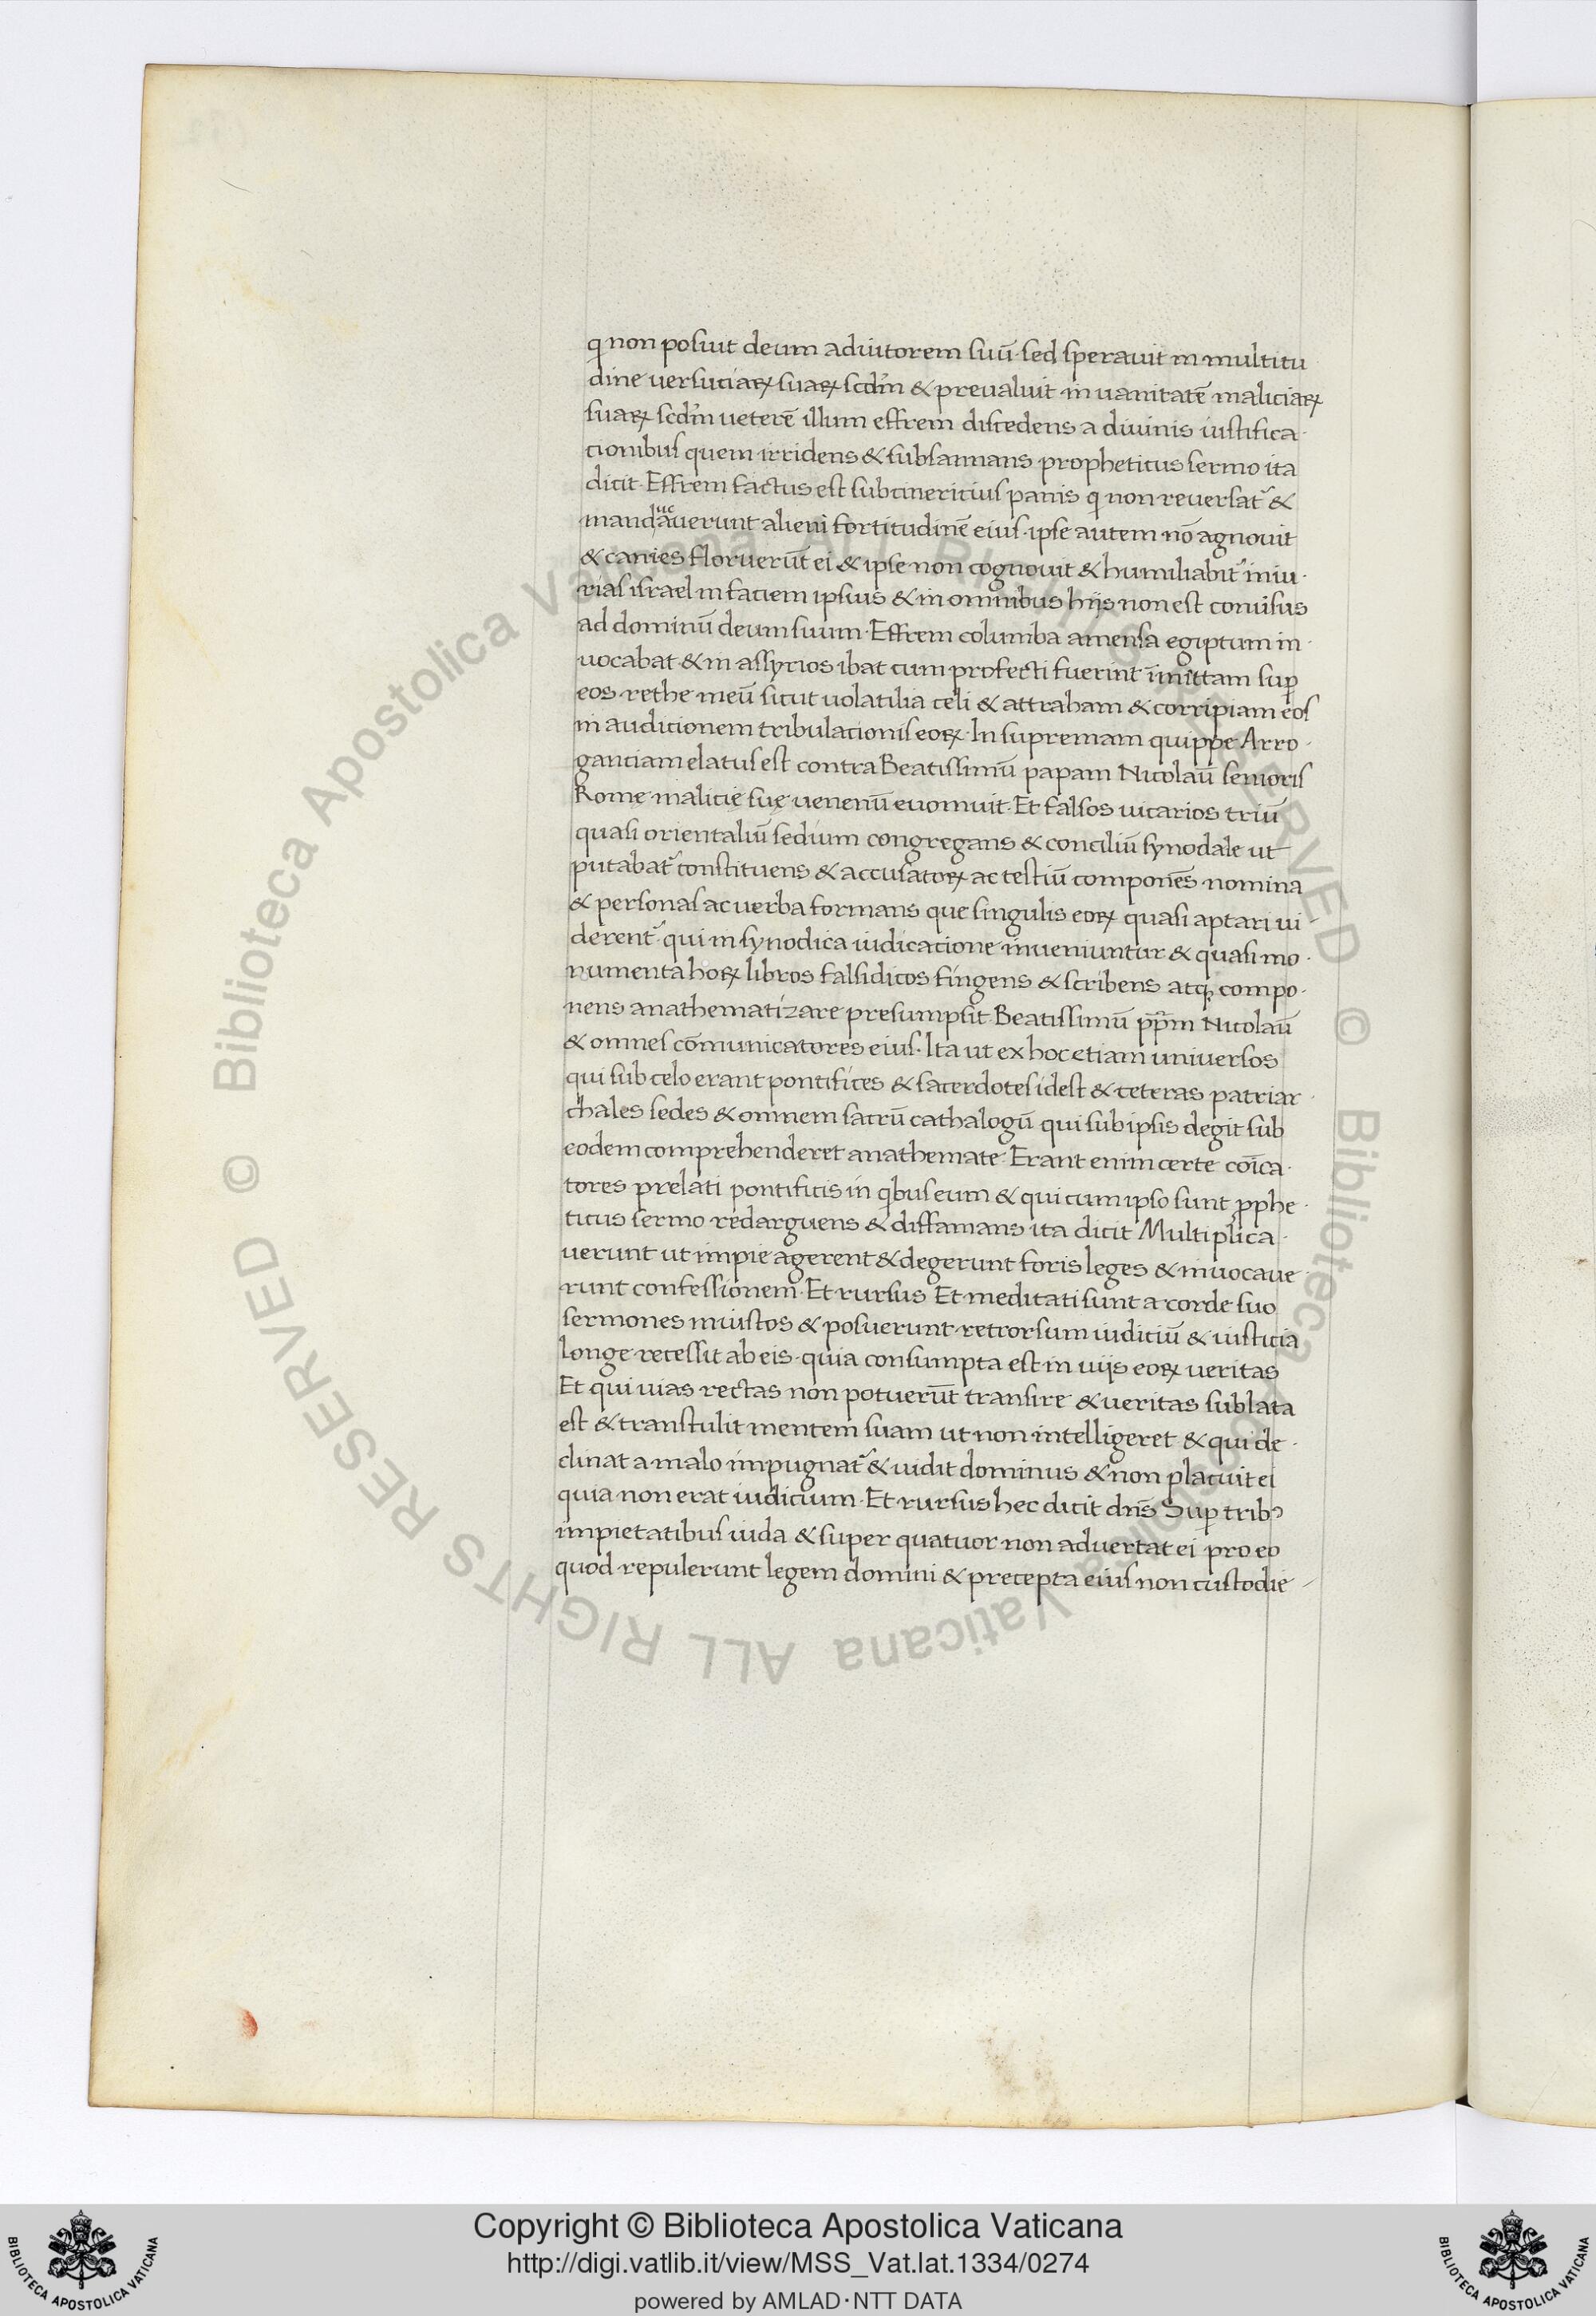 q non posuit deum adiutorem suū. sed sperauit in multitu
dine uersuciaꝝ suaꝝ scd̄m & preualuit in uanitatē maliciaꝝ
suaꝝ scd̄m ueterē illum effrem discedens a diuinis iustifica
cionibus quem irridens & subsannans propheticus sermo ita
dicit. Effrem factus est subcinericius panis q non reuersat᷑ &
manducauerunt alieni fortitudinē eius. ipse autem nō agnouit
& canies floruerūt ei & ipse non cognouit & humiliabit᷑ iniu
rias israel in faciem ipsius & in omnibus hijs non est conūsus
ad dominū deum suum. Effrem columba amensa egiptum in
uocabat & in assyrios ibat cum profecti fuerint īmittam suꝑ
eos rethe meū sicut uolatilia celi & attraham & corripiam eos
in audicionem tribulacionis eoꝝ. In supremam quippe Arro
ganciam elatus est contra Beatissimū papam Nicolaū senioris
Rome malicie sue uenenū euomuit. Et falsos uicarios triū
quasi orientaliū sedium congregans & conciliū synodale ut
putabat᷑ constituens & accusatoꝝ ac testiū componēs nomina
& personas ac uerba formans que singulis eoꝝ quasi aptari ui
derent᷑ qui in synodica iudicacione inueniuntur & quasi mo
numenta hoꝝ libros falsidicos fingens & scribens atq; compo
nens anathematizare presumpsit. Beatissimū pp̄m Nicolaū
& omnes cōmunicatores eius. Ita ut ex hoc etiam uniuersos
qui sub celo erant pontifices & sacerdotes idest & ceteras patriar
chales sedes & omnem sacrū cathalogū qui sub ipsis degit sub
eodem comprehenderet anathemate. Erant enim certe cōica
tores prelati pontificis in qbus eum & qui cum ipso sunt ꝓphe
ticus sermo redarguens & diffamans ita dicit Multiplica
uerunt ut impie agerent & degerunt foris leges & inuocaue
runt confessionem. Et rursus Et meditati sunt a corde suo
sermones iniustos & posuerunt retrorsum iudiciū & iusticia
longe recessit ab eis. quia consumpta est in uijs eoꝝ ueritas
Et qui uias rectas non potuerūt transire & ueritas sublata
est & transtulit mentem suam ut non intelligeret & qui de
clinat a malo impugnat᷑ & uidit dominus & non placuit ei
quia non erat iudicium. Et rursus hec dicit dn̄s Suꝑ tribꝰ
impietatibus iuda & super quatuor non aduertat ei pro eo
quod repulerunt legem domini & precepta eius non custodie
© Biblioteca Apostolica Vaticana ALL RIGHTS RESERVED © Biblioteca Apostolica Vaticana ALL RIGHTS RESERVED
Copyright © Biblioteca Apostolica Vaticana
http://digi.vatlib.it/view/MSS_Vat.lat.1334/0274
powered by AMLAD·NTT DATA
BIBLIOTECA APOSTOLICA VATICANA
BIBLIOTECA APOSTOLICA VATICANA